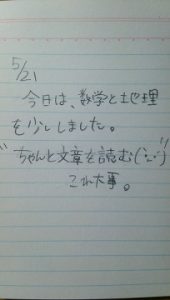 5/21
今日は、数学と地理
を少ししました。
"ちゃんと文章を読む(˙-˙)"
これ大事。